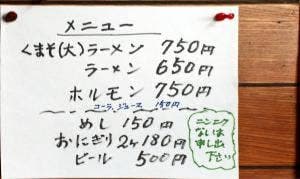 メニュー
くまそ(大)ラーメン 750円
ラーメン 650円
ホルモン 750円
コーラ、ジュース 150円
めし 150円
おにぎり2ケ180円
ビール 500円
ニンニク
ないは
申し出
下さい